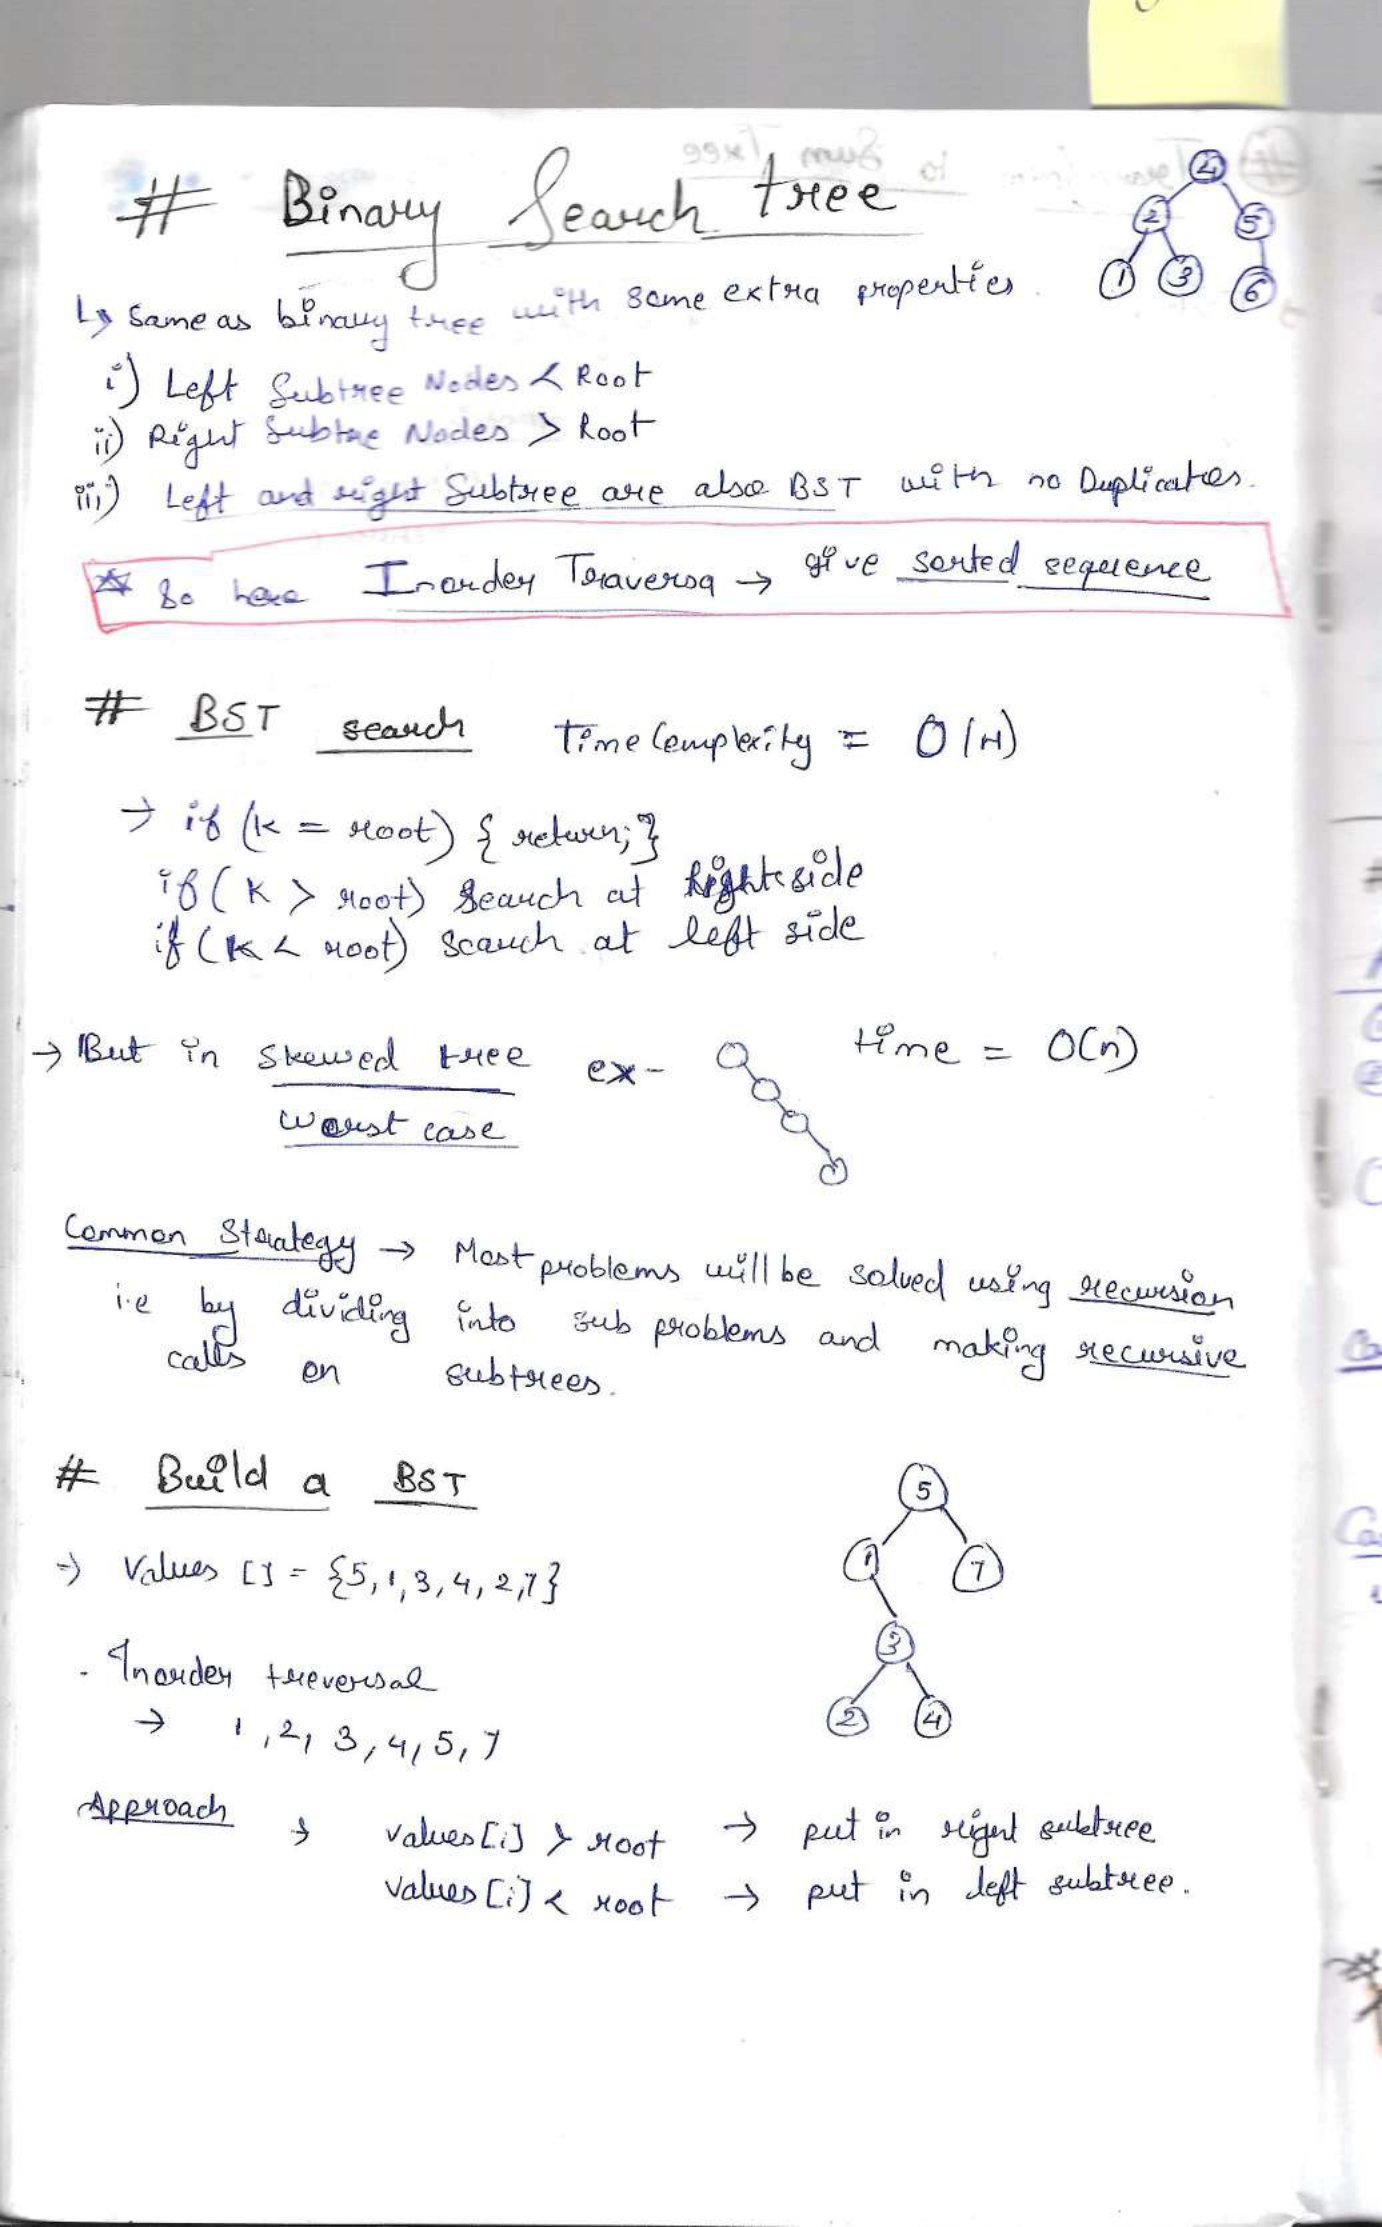 # Binary Search tree
↳ Same as binary tree with some extra properties.
4
2 5
1 3 6
i) Left Subtree Nodes < Root
ii) Right Subtree Nodes > Root
iii) Left and right Subtree are also BST with no Duplicates.
☆ So here Inorder Traversa → give sorted sequence
# BST search Time Complexity = O(H)
→ if (k = root) { return; }
if (K > root) Search at Right side
if (K < root) search at left side
→ But in skewed tree ex- time = O(n)
worst case
Common Strategy → Most problems will be solved using recursion
i.e by dividing into sub problems and making recursive
calls on subtrees.
# Build a BST
→ Values [] = {5, 1, 3, 4, 2, 7}
5
1 7
3
2 4
. Inorder treversal
→ 1, 2, 3, 4, 5, 7
Approach → values[i] > root → put in right subtree
values[i] < root → put in left subtree.